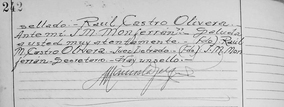 242
sellado. Raúl Castro Olivera.
Ante mi J. M. Monferran". Saluda
a usted muy atentamente. (Fdo) Raúl
M. Castro Olivera Juez Letrado. (Fdo) J. M. Mon-
ferrán Secretero. Hay un sello.